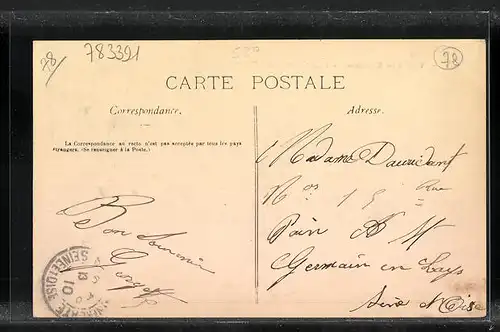 78/
783391
78
CARTE POSTALE
Correspondance.
Adresse.
La Correspondance au recto n'est pas acceptée par tous les pays
étrangers. (Se renseigner à la Poste.)
Bon Souvenir
Madame
Nos 15 Rue
Germain en Lays
Seine & Oise
10
SEINE-ET-OISE